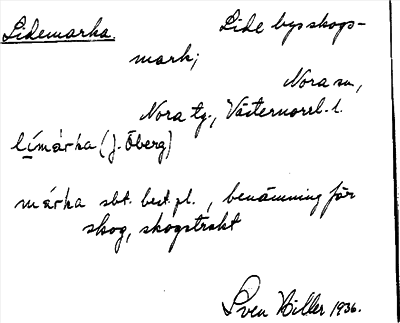 Lidemarka. Lide byskogs-
mark;
Nora sn,
Nora tg., Västernorrl. l.
límárka (J. Öberg)
márka sbt. best. pl., benämning för
skog, skogstrakt
Sven Hiller 1936.